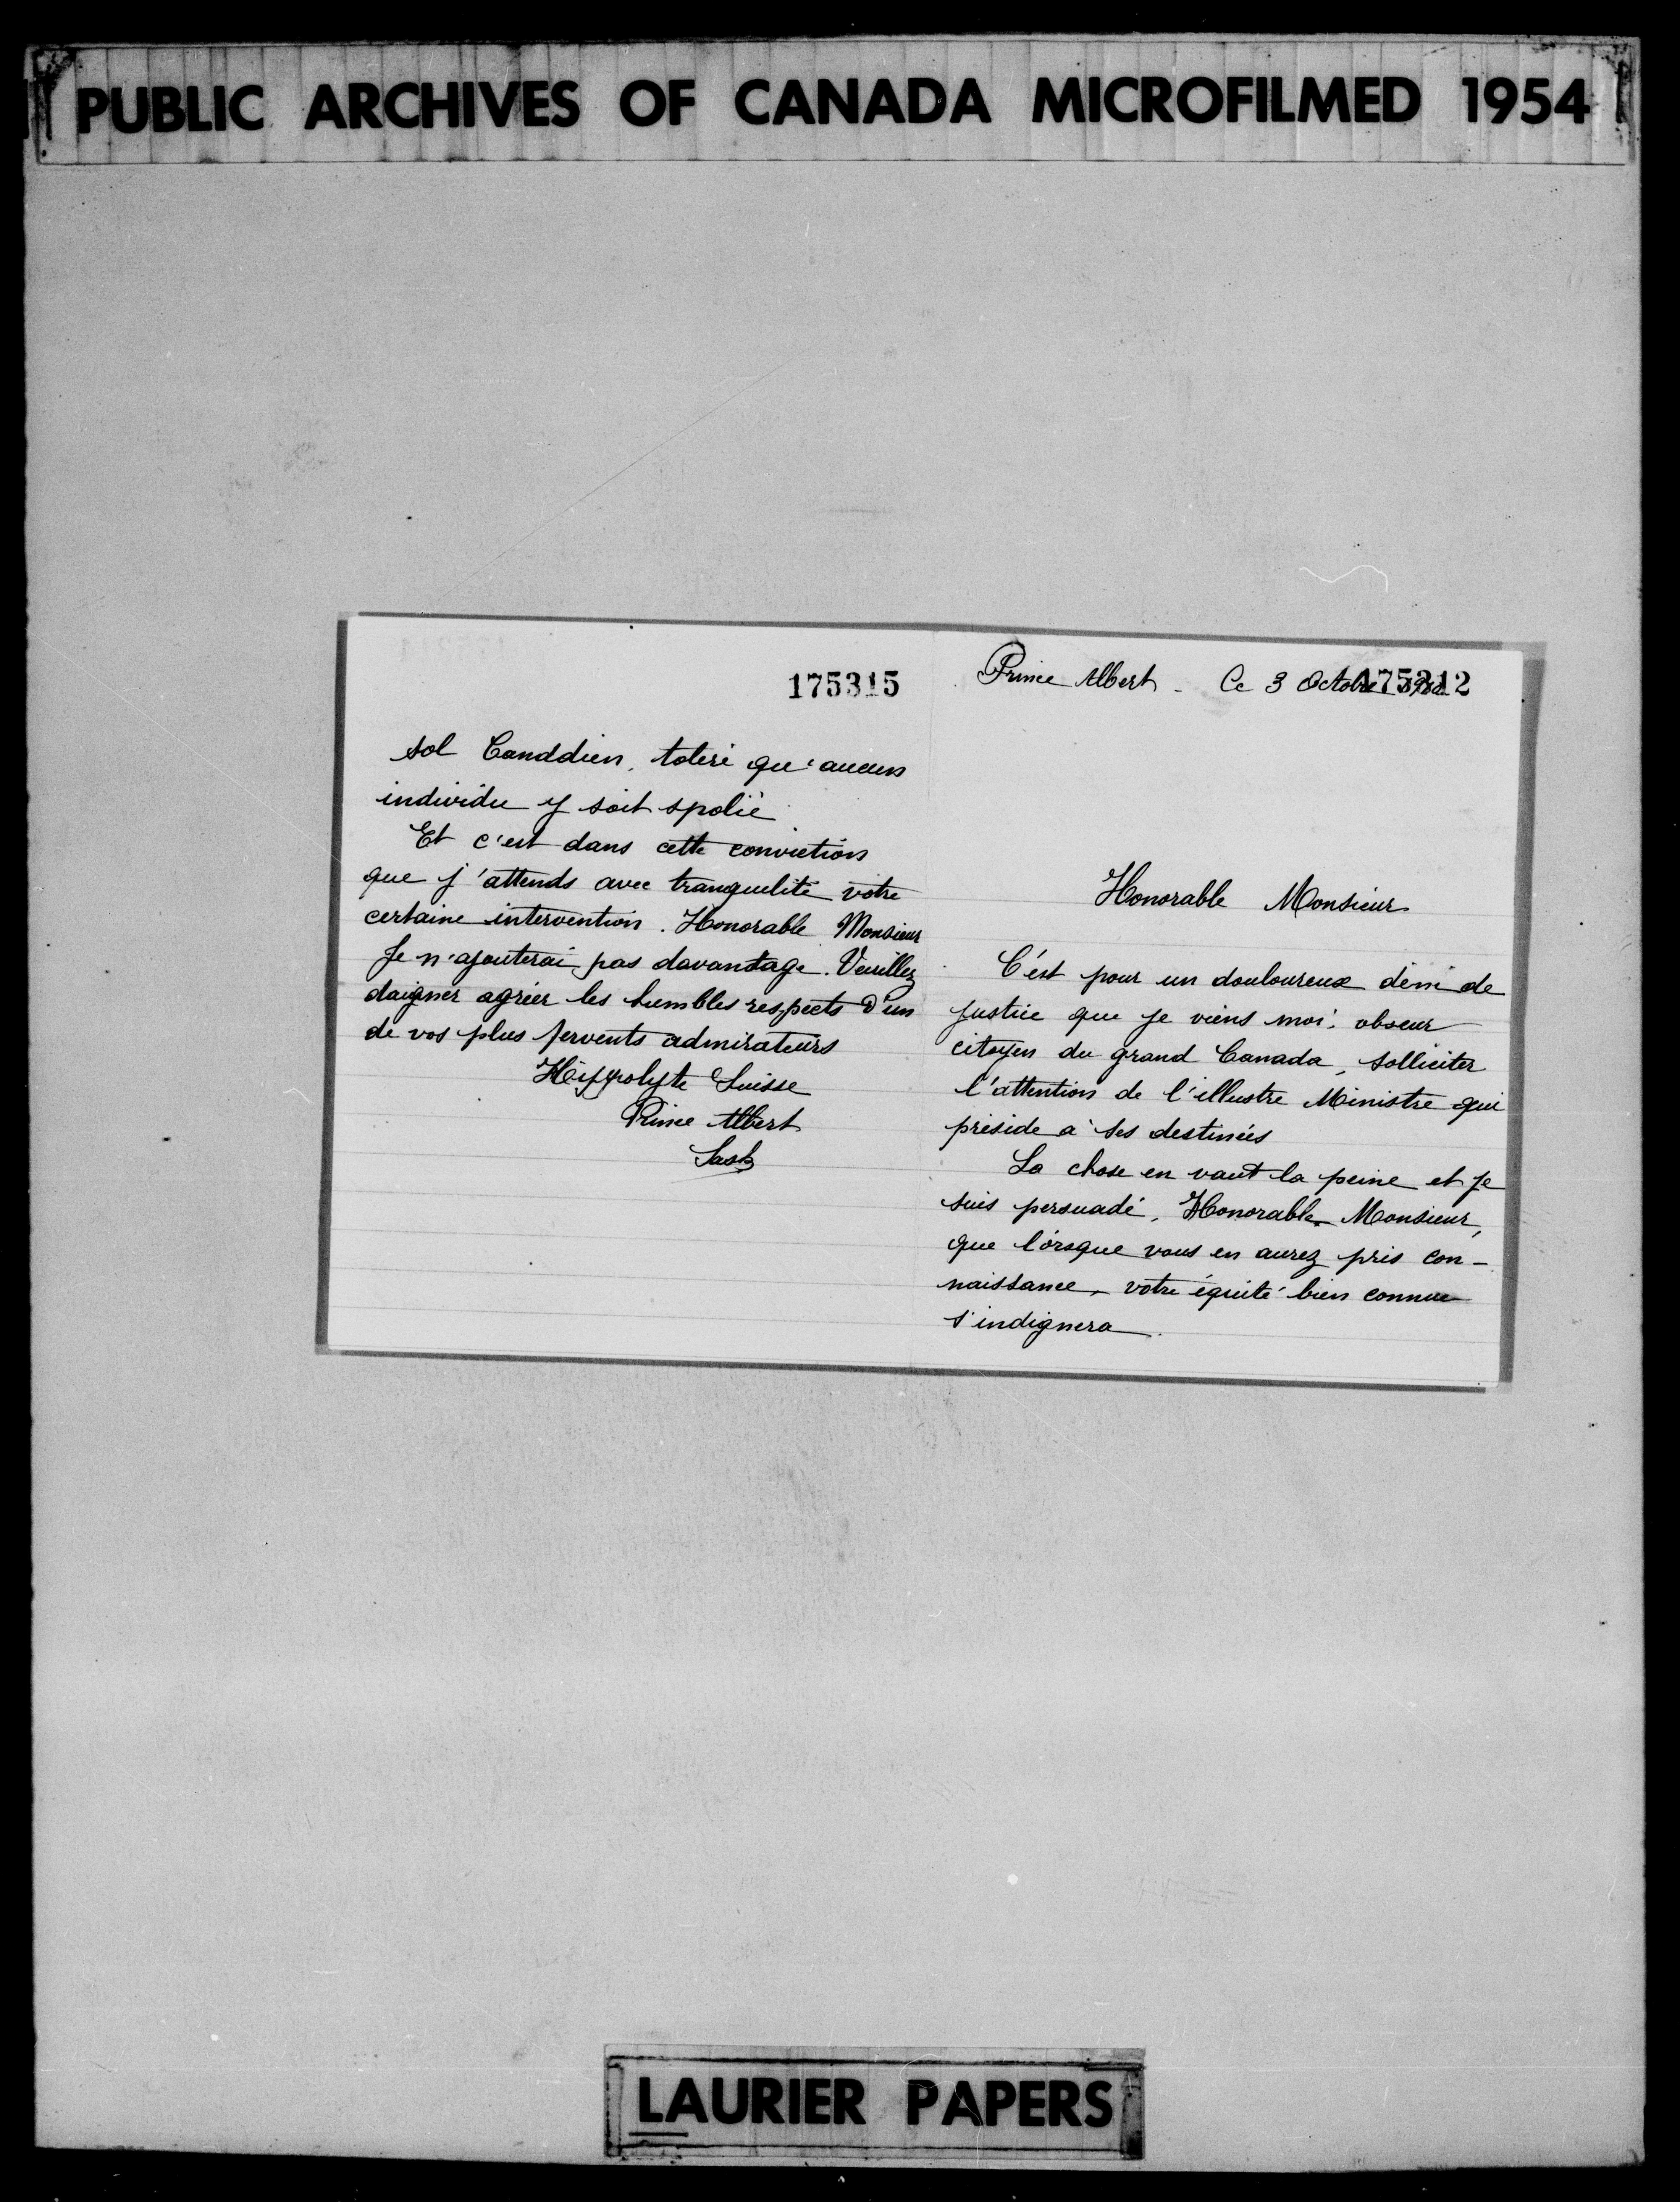 PUBLIC ARCHIVES OF CANADA MICROFILMED 1954
175315
sol Canddien, toléré qu'aucun
individu y soit spolié
Et c'est dans cette conviction
que j'attends avec tranquilité votre
certaine intervention. Honorable Monsieur
Je n'ajouterai pas davantage. Veuillez
daigner agréer les humbles respects d'un
de vos plus fervents admirateurs
Hippolyte Suisse
Prince Albert
Sask
Prince Albert - Ce 3 Octobre
175312
Honorable Monsieur
C'est pour un douloureux déni de
justice que je viens moi, obscur
citoyen du grand Canada, solliciter
l'attention de l'illustre Ministre qui
préside à ses destinées
La chose en vaut la peine et je
suis persuadé, Honorable Monsieur,
que lorsque vous en aurez pris con-
naissance, votre équité bien connue
s'indignera.
LAURIER PAPERS